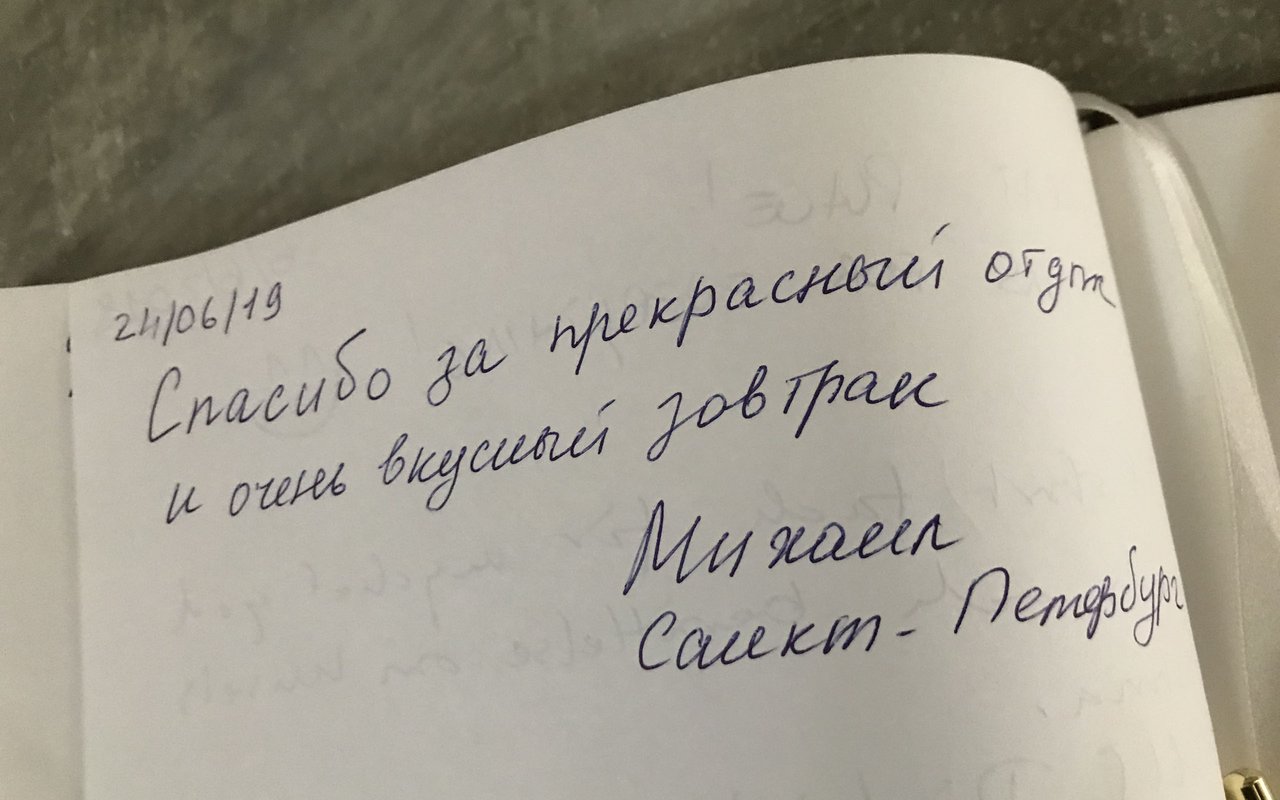 24/06/19
Спасибо за прекрасный отдых
и очень вкусный завтрак
Михаил
Санкт-Петербург